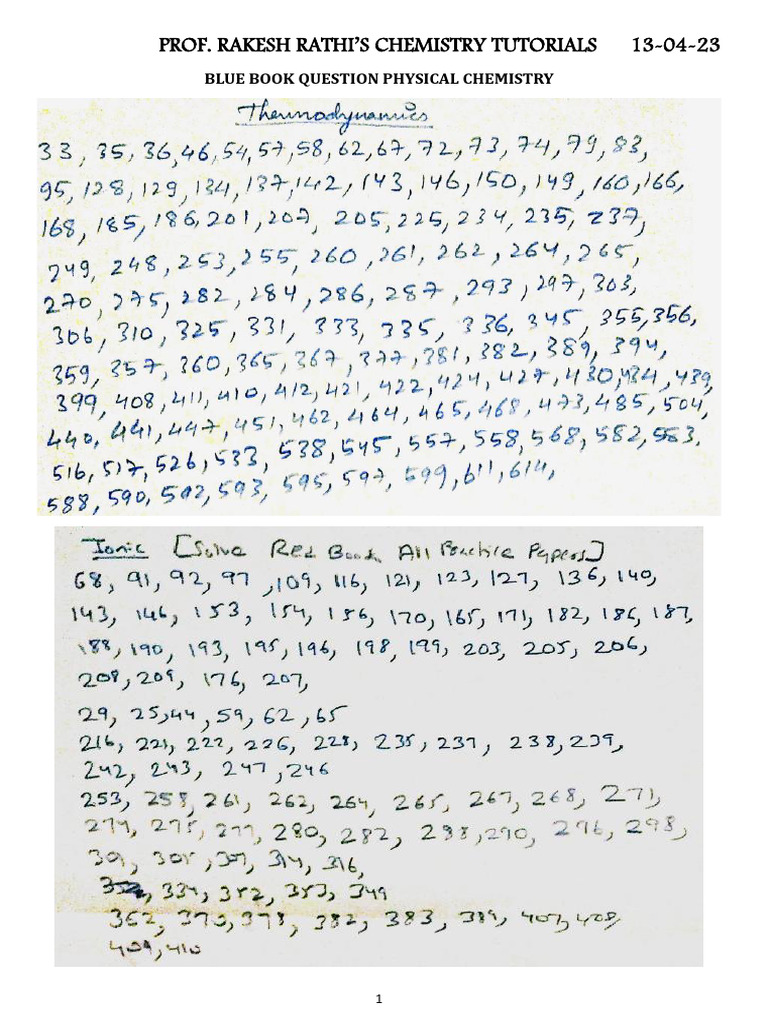 PROF. RAKESH RATHI'S CHEMISTRY TUTORIALS 13-04-23
BLUE BOOK QUESTION PHYSICAL CHEMISTRY
Thermodynamics
33, 35, 36, 46, 54, 57, 58, 62, 67, 72, 73, 74, 79, 83,
95, 128, 129, 134, 137, 142, 143, 146, 150, 149, 160, 166,
168, 185, 186, 201, 207, 205, 225, 234, 235, 237,
249, 248, 253, 255, 260, 261, 262, 264, 265,
270, 275, 282, 284, 286, 287, 293, 297, 303,
306, 310, 325, 331, 333, 335, 336, 345, 355, 356,
359, 357, 360, 365, 367, 377, 381, 382, 389, 394,
399, 408, 411, 410, 412, 421, 422, 424, 427, 430, 434, 439,
440, 441, 447, 451, 462, 464, 465, 468, 473, 485, 504,
516, 517, 526, 533, 538, 545, 557, 558, 568, 582, 583,
588, 590, 592, 593, 595, 597, 599, 611, 614,
Ionic [Solve Red Book All Practice Papers]
68, 91, 92, 97, 109, 116, 121, 123, 127, 136, 140,
143, 146, 153, 154, 156, 170, 165, 171, 182, 186, 187,
188, 190, 193, 195, 196, 198, 199, 203, 205, 206,
208, 209, 176, 207,
29, 25, 44, 59, 62, 65
216, 221, 222, 226, 228, 235, 237, 238, 239,
242, 243, 247, 246
253, 258, 261, 262, 264, 265, 267, 268, 271,
274, 275, 277, 280, 282, 288, 290, 296, 298,
301, 305, 307, 314, 316,
334, 352, 353, 349
362, 370, 378, 382, 383, 389, 407, 408,
409, 410
1